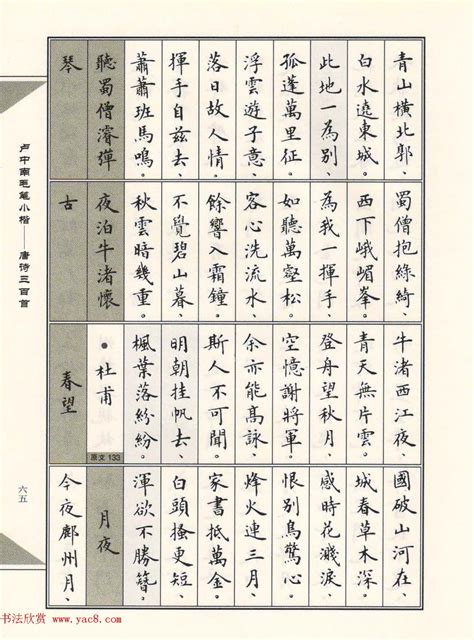 青山橫北郭、
白水遶東城。
此地一為別、
孤蓬萬里征。
浮雲遊子意、
落日故人情。
揮手自兹去、
蕭蕭班馬鳴。
聽蜀僧濬彈
琴
蜀僧抱綠綺、
西下峨嵋峯。
為我一揮手、
如聽萬壑松。
客心洗流水、
餘響入霜鐘。
不覺碧山暮、
秋雲暗幾重。
夜泊牛渚懷
古
牛渚西江夜、
青天無片雲。
登舟望秋月、
空憶謝將軍。
余亦能高詠、
斯人不可聞。
明朝挂帆去、
楓葉落紛紛。
•杜甫
原文 133
春望
國破山河在、
城春草木深。
感時花濺淚、
恨別鳥驚心。
烽火連三月、
家書抵萬金。
白頭搔更短、
渾欲不勝簪。
月夜
今夜鄜州月、
卢中南毛笔小楷——唐诗三百首
六五
书法欣赏 www.yac8.com